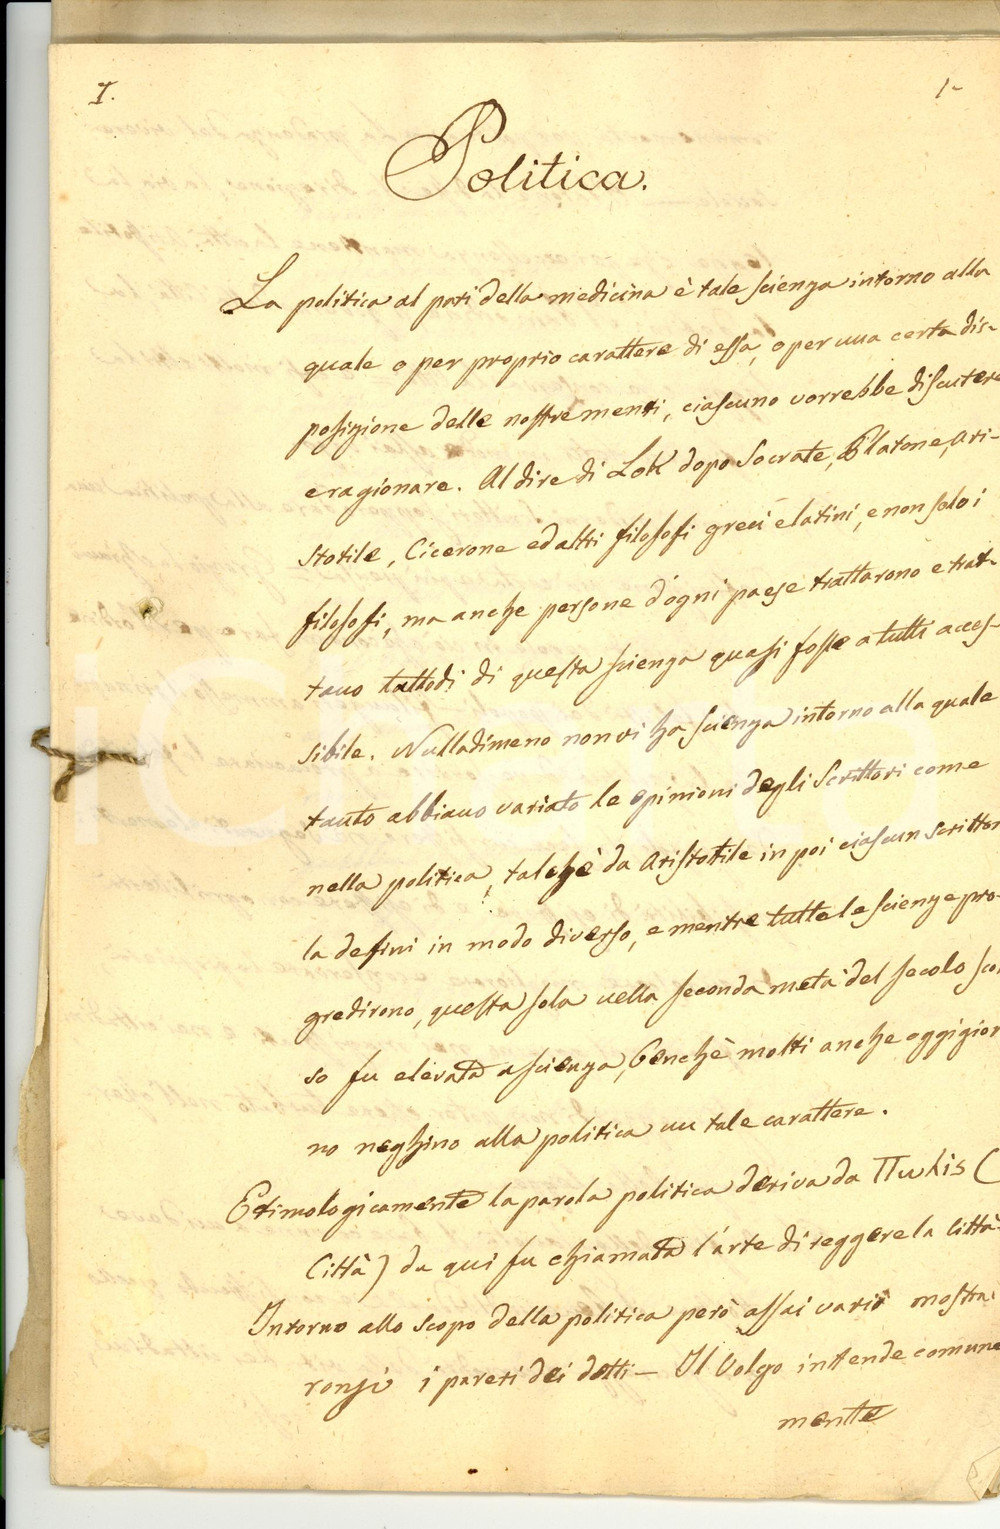 I. 1-
Politica.
La politica al pari della medicina è tale scienza intorno alla
quale o per proprio carattere di essa, o per una certa dis-
posizione delle nostre menti, ciascuno vorrebbe discutere
e ragionare. Al dire di Lok dopo Socrate, Platone, Ari-
stotile, Cicerone ed altri filosofi greci e latini, e non solo i
filosofi, ma anche persone d'ogni paese trattarono e trat-
tano tuttodì di questa scienza quasi fosse a tutti acces-
sibile. Nulladimeno non vi ha scienza intorno alla quale
tanto abbiano variato le opinioni degli Scrittori come
nella politica, talchè da Aristotile in poi ciascun scrittor
la definì in modo diverso, e mentre tutte le scienze pro-
gredirono, questa sola nella seconda metà del secolo scor
so fu elevata a scienza, benchè molti anche oggigior
no neghino alla politica un tale carattere.
Etimologicamente la parola politica deriva da (
Città) da qui fu chiamata l'arte di reggere la Città.
Intorno allo scopo della politica però assai varii mostra
ronsi i pareri dei dotti – Il Volgo intende comune
mente